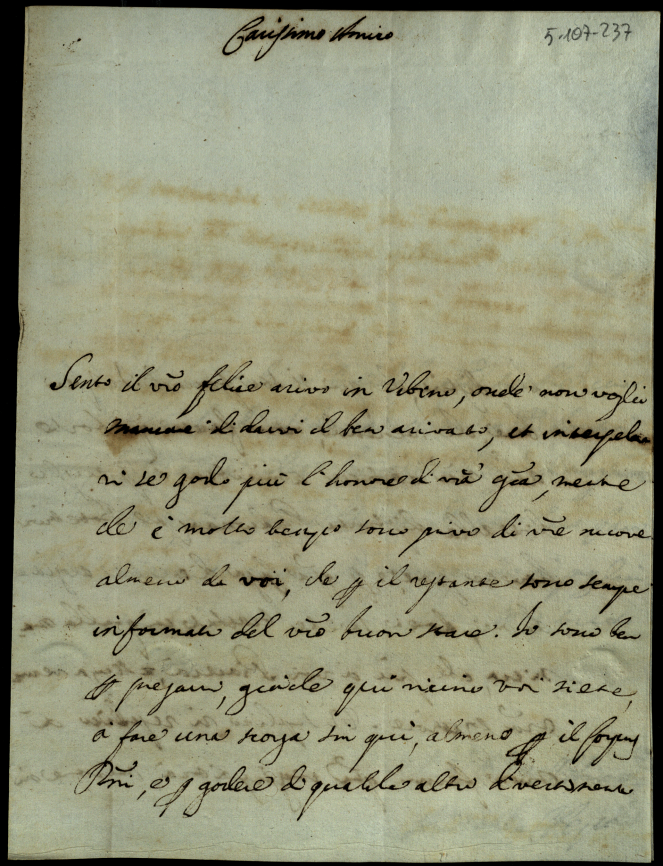 Carissimo Amico
5-107-237
Sento il vro felice arivo in Urbino, onde non voglio
mancare di darvi il ben arivato, et interpelar
vi se godo più l'honore di vra gra, mentre
che è molto tempo sono privo di vre nuove
almeno da voi, che p il restante sono sempre
informato del vro buon stare. Io sono ben
p pregarvi, giache qui vicino voi siete,
a fare una scorsa sin qui, almeno p il
Pmi, e p godere di qualche altro divertimento